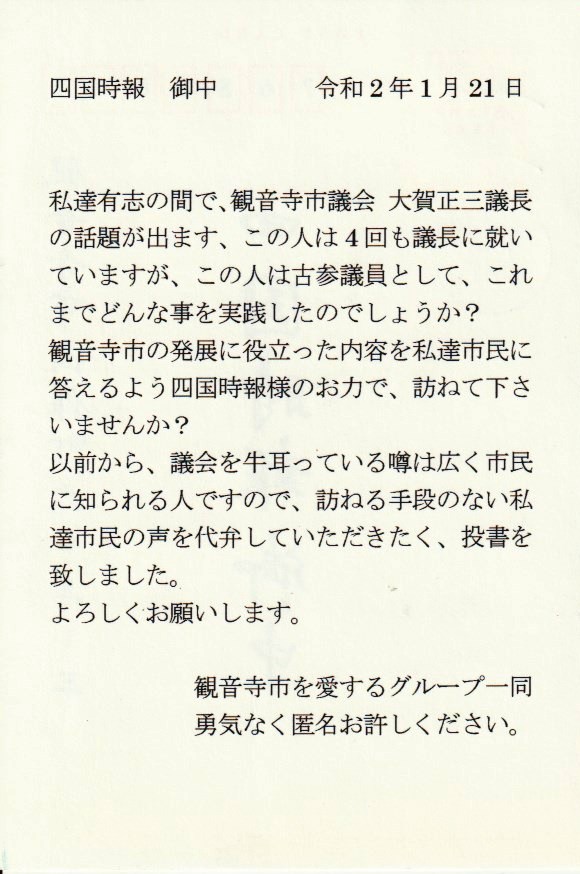 四国時報　御中　　　　令和２年１月 21 日
私達有志の間で、観音寺市議会 大賀正三議長
の話題が出ます、この人は４回も議長に就い
ていますが、この人は古参議員として、これ
までどんな事を実践したのでしょうか？
観音寺市の発展に役立った内容を私達市民に
答えるよう四国時報様のお力で、訪ねて下さ
いませんか？
以前から、議会を牛耳っている噂は広く市民
に知られる人ですので、訪ねる手段のない私
達市民の声を代弁していただきたく、投書を
致しました。
よろしくお願いします。
観音寺市を愛するグループ一同
勇気なく匿名お許しください。